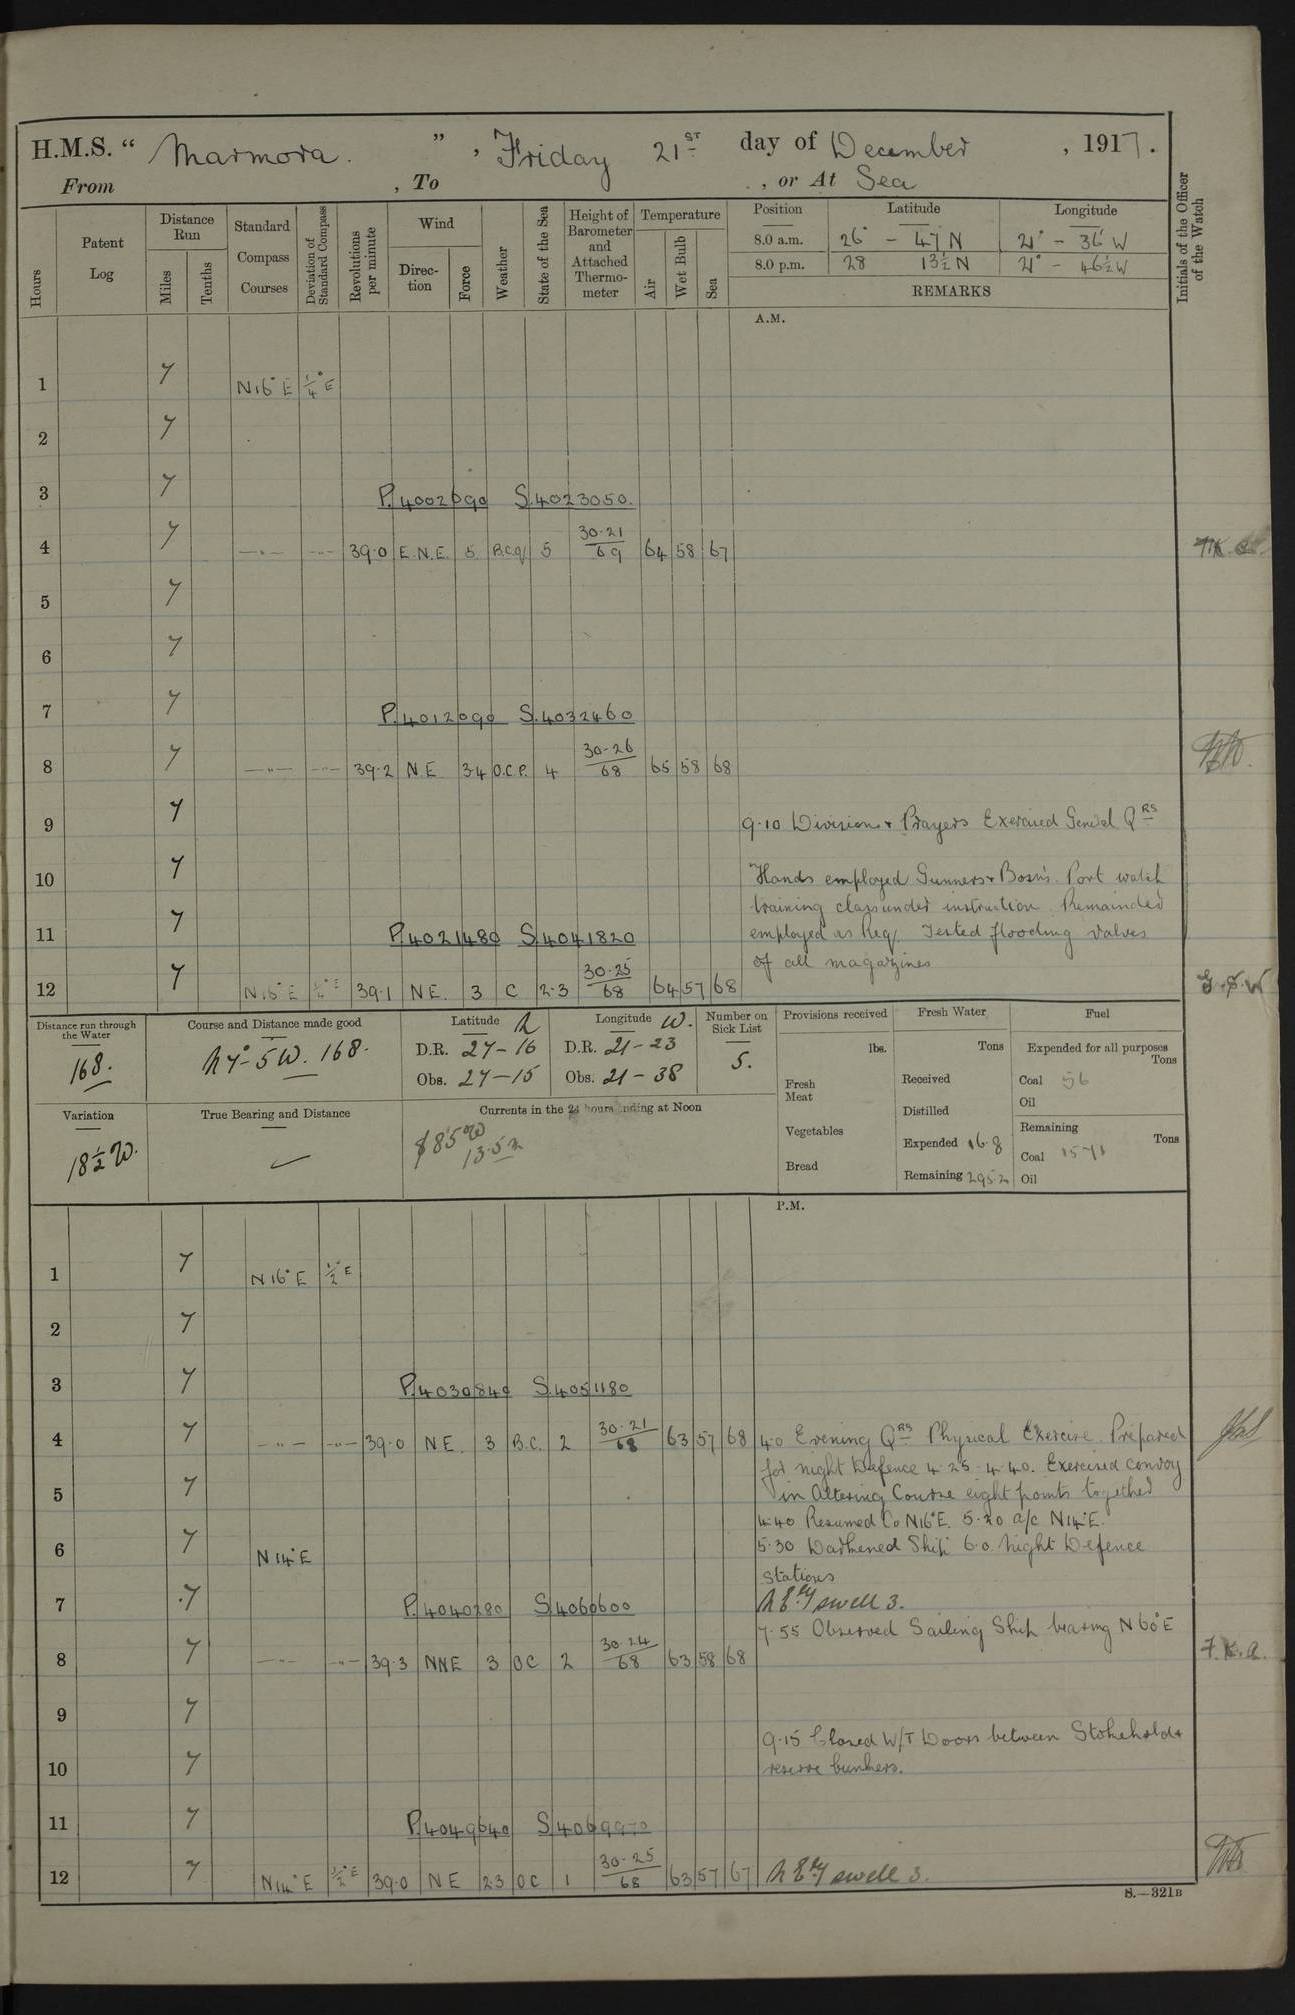 H.M.S. “ Marmora. ” , Friday 21ST day of December , 1917.
From , To , or At Sea
Hours
Patent Log
Distance Run
Miles
Tenths
Standard Compass Courses
Deviation of Standard Compass
Revolutions per minute
Wind
Direction
Force
Weather
State of the Sea
Height of Barometer and Attached Thermometer
Temperature
Air
Wet Bulb
Sea
Position Latitude Longitude
8.0 a.m. 26° - 47 N 21° - 36' W
8.0 p.m. 28 13½ N 21° - 46½ W
REMARKS
Initials of the Officer of the Watch
A.M.
1 7 N16°E ¼°E
2 7
3 7 P.4002090 S.4023050.
4 7 —"— —"— 39.0 E.N.E. 5 B.C.q 5 30.21/69 64 58 67
5 7
6 7
7 7 P.4012090 S.4032460
8 7 —"— —"— 39.2 N.E 34 O.C.P. 4 30-26/68 65 58 68
9 7 9.10 Divisions + Prayers Exercised General QRS
10 7 Hands employed Gunners + Bosn's. Port watch
training class under instruction. Remainder
11 7 P.4021480 S.4041820 employed as Req. Tested flooding valves
of all magazines
12 7 N16°E ½°E 39.1 NE. 3 C 2.3 30-25/68 64 57 68
Distance run through the Water
168.
Course and Distance made good
N 7°- 5 W. 168.
Latitude N
D.R. 27-16
Obs. 27-15
Longitude W.
D.R. 21-23
Obs. 21-38
Number on Sick List
5.
Provisions received
lbs.
Fresh Meat
Vegetables
Bread
Fresh Water
Tons
Received
Distilled
Expended 16.8
Remaining 295.2
Fuel
Expended for all purposes
Tons
Coal 56
Oil
Remaining
Tons
Coal 1571
Oil
Variation
18½ W.
True Bearing and Distance
Currents in the 24 hours ending at Noon
S 85 W
13.5
P.M.
1 7 N16°E ½°E
2 7
3 7 P.4030840 S.4051180
4 7 —"— —"— 39.0 NE. 3 B.C. 2 30-21/68 63 57 68 4.0 Evening QRS Physical Exercise. Prepared
for night Defence 4.25 - 4.40. Exercised convoy
5 7 in Altering Course eight points together
4.40 Resumed Co N16°E. 5.20 a/c N14°E.
6 7 N14°E 5.30 Darkened Ship 6.0 Night Defence
Stations
7 7 P.4040280 S.4060600 N E'ly swell 3.
7.55 Observed Sailing Ship bearing N60°E
8 7 —"— —"— 39.3 NNE 3 OC 2 30-24/68 63 58 68 F.K.A.
9 7
9.15 Closed W/T Doors between Stokehold +
10 7 reserve bunkers.
11 7 P.4049640 S.4069970
12 7 N14°E ½°E 39.0 NE 23 OC 1 30-25/68 63 57 67 N E'ly swell 3.
S.—321B